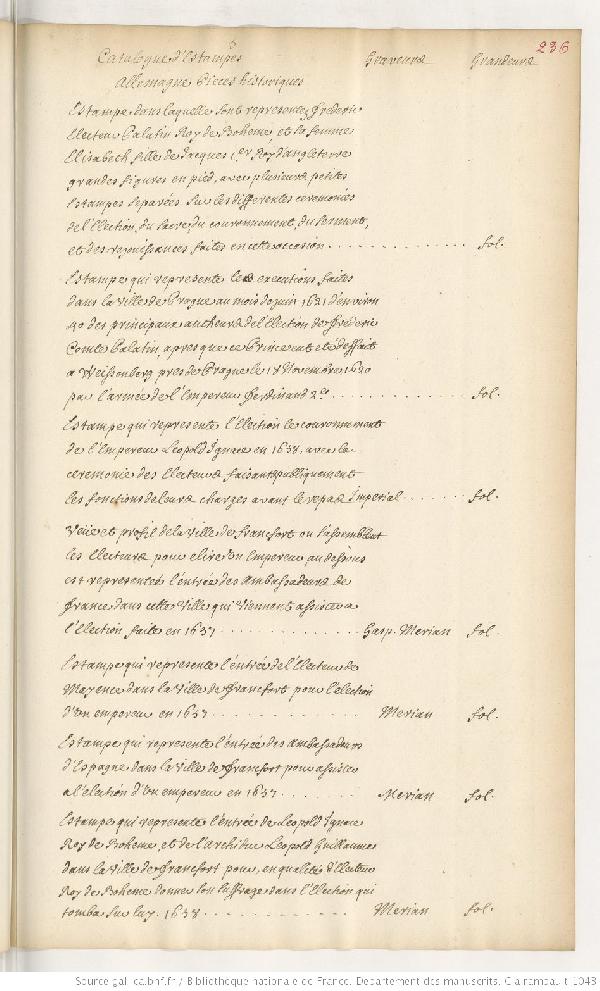 236
Catalogue d'Estampes Graveurs Grandeurs
Allemagne Pieces historiques
Estampe dans laquelle sont representez frederic
Electeur Palatin Roy de Boheme, et sa femme
Elisabeth fille de Jacques 1.er Roy d'angleterre
grandes figures en pied, avec plusieurs petites
Estampes separées sur les differentes ceremonies
de l'Election, du sacre, du couronnement, du serment,
et des rejouissances faites en cette occasion . . . . . . . . . . . . fol.
Estampe qui represente les executions faites
dans la ville de Prague au mois de juin 1621 d'environ
40 des principaux autheurs de l'Election de frederic
Comte Palatin, apres que ce Prince eut eté deffait
a Weissenberg pres de Prague le 18 Novembre 1620
par l'armée de l'Empereur ferdinand 2.d . . . . . . . . . . . . fol.
Estampe qui represente l'Election le couronnement
de l'Empereur Leopold Ignace en 1658. avec la
ceremonie des Electeurs faisants publiquement
les fonctions de leurs charges avant le repas Imperial . . . . . . fol.
Veüe et profil de la ville de francfort ou s'assemblent
les Electeurs pour elire un Empereur au dessous
est representée l'entrée des Ambassadeurs de
france dans cette ville qui viennent assister a
l'Election faite en 1657 . . . . . . . . . . . . Gasp. Merian fol.
Estampe qui represente l'entrée de l'Electeur de
Mayence dans la ville de francfort pour l'election
d'un empereur en 1657 . . . . . . . . . . . . Merian fol.
Estampe qui represente l'entrée des Ambassadeurs
d'Espagne dans la ville de francfort pour assister
a l'election d'un empereur en 1657 . . . . . . . Merian fol.
Estampe qui represente l'entrée de Leopold Ignace
Roy de Boheme, et de l'archiduc Leopold Guillaume
dans la ville de francfort pour, en qualité d'Electeur
Roy de Boheme donner son suffrage dans l'Election qui
tomba sur luy. 1658 . . . . . . . . . . . . Merian fol.
Source gallica.bnf.fr / Bibliothèque nationale de France. Département des manuscrits. Clairambault 1043